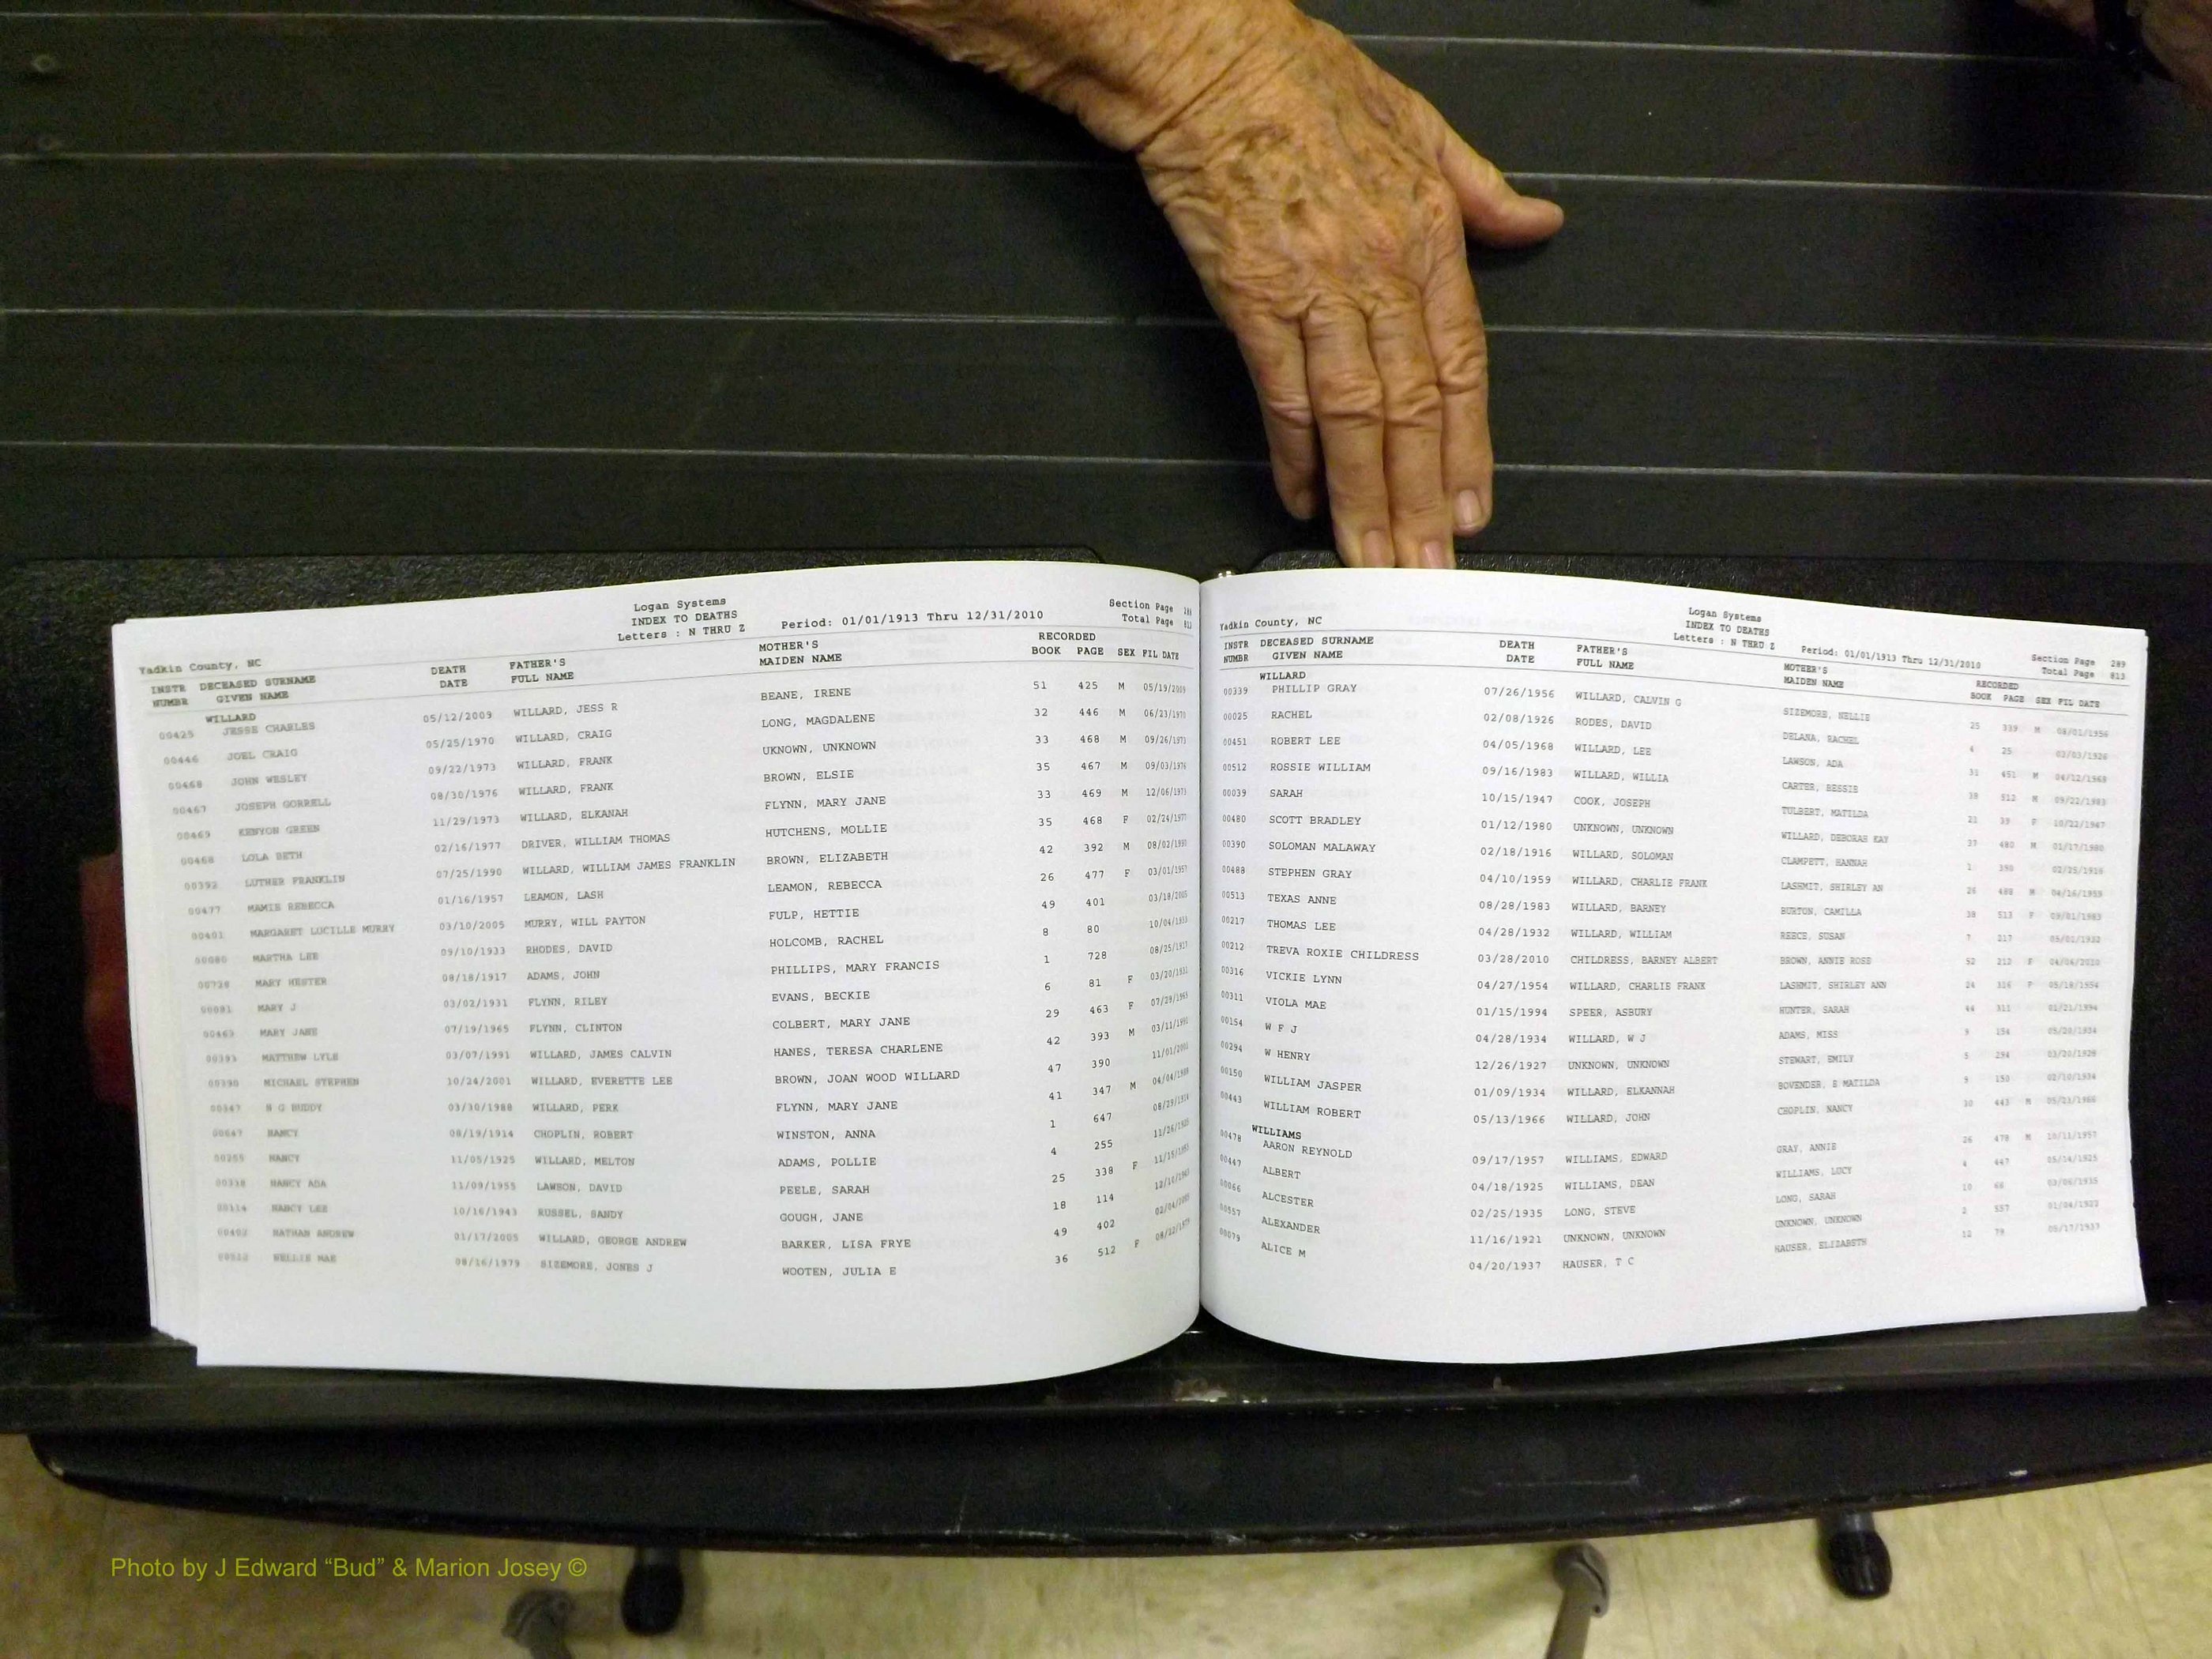 Logan Systems
INDEX TO DEATHS
Letters : N THRU Z Period: 01/01/1913 Thru 12/31/2010
Section Page
Total Page 813
Yadkin County, NC
INSTR DECEASED SURNAME DEATH FATHER'S MOTHER'S RECORDED
NUMBR GIVEN NAME DATE FULL NAME MAIDEN NAME BOOK PAGE SEX FIL DATE
WILLARD
00425 JESSE CHARLES 05/12/2009 WILLARD, JESS R BEANE, IRENE 51 425 M 05/19/2009
00446 JOEL CRAIG 05/25/1970 WILLARD, CRAIG LONG, MAGDALENE 32 446 M 06/23/1970
00468 JOHN WESLEY 09/22/1973 WILLARD, FRANK UKNOWN, UNKNOWN 33 468 M 09/26/1973
00467 JOSEPH GORRELL 08/30/1976 WILLARD, FRANK BROWN, ELSIE 35 467 M 09/03/1976
00469 KENYON GREEN 11/29/1973 WILLARD, ELKANAH FLYNN, MARY JANE 33 469 M 12/06/1973
00468 LOLA BETH 02/16/1977 DRIVER, WILLIAM THOMAS HUTCHENS, MOLLIE 35 468 F 02/24/1977
00392 LUTHER FRANKLIN 07/25/1990 WILLARD, WILLIAM JAMES FRANKLIN BROWN, ELIZABETH 42 392 M 08/02/1990
00477 MAMIE REBECCA 01/16/1957 LEAMON, LASH LEAMON, REBECCA 26 477 F 03/01/1957
00401 MARGARET LUCILLE MURRY 03/10/2005 MURRY, WILL PAYTON FULP, HETTIE 49 401 03/18/2005
00080 MARTHA LEE 09/10/1933 RHODES, DAVID HOLCOMB, RACHEL 8 80 10/04/1933
00728 MARY HESTER 08/18/1917 ADAMS, JOHN PHILLIPS, MARY FRANCIS 1 728 08/25/1917
00081 MARY J 03/02/1931 FLYNN, RILEY EVANS, BECKIE 6 81 F 03/20/1931
00463 MARY JANE 07/19/1965 FLYNN, CLINTON COLBERT, MARY JANE 29 463 F 07/29/1965
00393 MATTHEW LYLE 03/07/1991 WILLARD, JAMES CALVIN HANES, TERESA CHARLENE 42 393 M 03/11/1991
00390 MICHAEL STEPHEN 10/24/2001 WILLARD, EVERETTE LEE BROWN, JOAN WOOD WILLARD 47 390 11/01/2001
00347 N G BUDDY 03/30/1988 WILLARD, PERK FLYNN, MARY JANE 41 347 M 04/04/1988
00647 NANCY 08/19/1914 CHOPLIN, ROBERT WINSTON, ANNA 1 647 08/29/1914
00255 NANCY 11/05/1925 WILLARD, MELTON ADAMS, POLLIE 4 255 11/26/1925
00338 NANCY ADA 11/09/1955 LAWSON, DAVID PEELE, SARAH 25 338 F 11/15/1955
00114 NANCY LEE 10/16/1943 RUSSEL, SANDY GOUGH, JANE 18 114 12/10/1943
00402 NATHAN ANDREW 01/17/2005 WILLARD, GEORGE ANDREW BARKER, LISA FRYE 49 402 02/04/2005
00512 NELLIE MAE 08/16/1979 SIZEMORE, JONES J WOOTEN, JULIA E 36 512 F 08/22/1979
Logan Systems
INDEX TO DEATHS
Letters : N THRU Z Period: 01/01/1913 Thru 12/31/2010
Section Page 289
Total Page 813
Yadkin County, NC
INSTR DECEASED SURNAME DEATH FATHER'S MOTHER'S RECORDED
NUMBR GIVEN NAME DATE FULL NAME MAIDEN NAME BOOK PAGE SEX FIL DATE
WILLARD
00339 PHILLIP GRAY 07/26/1956 WILLARD, CALVIN G SIZEMORE, NELLIE 25 339 M 08/01/1956
00025 RACHEL 02/08/1926 RODES, DAVID DELANA, RACHEL 4 25 02/03/1926
00451 ROBERT LEE 04/05/1968 WILLARD, LEE LAWSON, ADA 31 451 M 04/12/1968
00512 ROSSIE WILLIAM 09/16/1983 WILLARD, WILLIA CARTER, BESSIE 38 512 M 09/22/1983
00039 SARAH 10/15/1947 COOK, JOSEPH TULBERT, MATILDA 21 39 F 10/22/1947
00480 SCOTT BRADLEY 01/12/1980 UNKNOWN, UNKNOWN WILLARD, DEBORAH KAY 37 480 M 01/17/1980
00390 SOLOMAN MALAWAY 02/18/1916 WILLARD, SOLOMAN CLAMPETT, HANNAH 1 390 02/25/1916
00488 STEPHEN GRAY 04/10/1959 WILLARD, CHARLIE FRANK LASHMIT, SHIRLEY AN 26 488 M 04/16/1959
00513 TEXAS ANNE 08/28/1983 WILLARD, BARNEY BURTON, CAMILLA 38 513 F 09/01/1983
00217 THOMAS LEE 04/28/1932 WILLARD, WILLIAM REECE, SUSAN 7 217 05/01/1932
00212 TREVA ROXIE CHILDRESS 03/28/2010 CHILDRESS, BARNEY ALBERT BROWN, ANNIE ROSE 52 212 F 04/06/2010
00316 VICKIE LYNN 04/27/1954 WILLARD, CHARLIE FRANK LASHMIT, SHIRLEY ANN 24 316 F 05/18/1954
00311 VIOLA MAE 01/15/1994 SPEER, ASBURY HUNTER, SARAH 44 311 01/21/1994
00154 W F J 04/28/1934 WILLARD, W J ADAMS, MISS 9 154 05/20/1934
00294 W HENRY 12/26/1927 UNKNOWN, UNKNOWN STEWART, EMILY 5 294 03/20/1928
00150 WILLIAM JASPER 01/09/1934 WILLARD, ELKANNAH BOVENDER, E MATILDA 9 150 02/10/1934
00443 WILLIAM ROBERT 05/13/1966 WILLARD, JOHN CHOPLIN, NANCY 30 443 M 05/23/1966
WILLIAMS
00478 AARON REYNOLD 09/17/1957 WILLIAMS, EDWARD GRAY, ANNIE 26 478 M 10/11/1957
00447 ALBERT 04/18/1925 WILLIAMS, DEAN WILLIAMS, LUCY 4 447 05/14/1925
00066 ALCESTER 02/25/1935 LONG, STEVE LONG, SARAH 10 66 03/06/1935
00557 ALEXANDER 11/16/1921 UNKNOWN, UNKNOWN UNKNOWN, UNKNOWN 2 557 01/04/1922
00079 ALICE M 04/20/1937 HAUSER, T C HAUSER, ELIZABETH 12 79 05/17/1937
Photo by J Edward “Bud” & Marion Josey ©